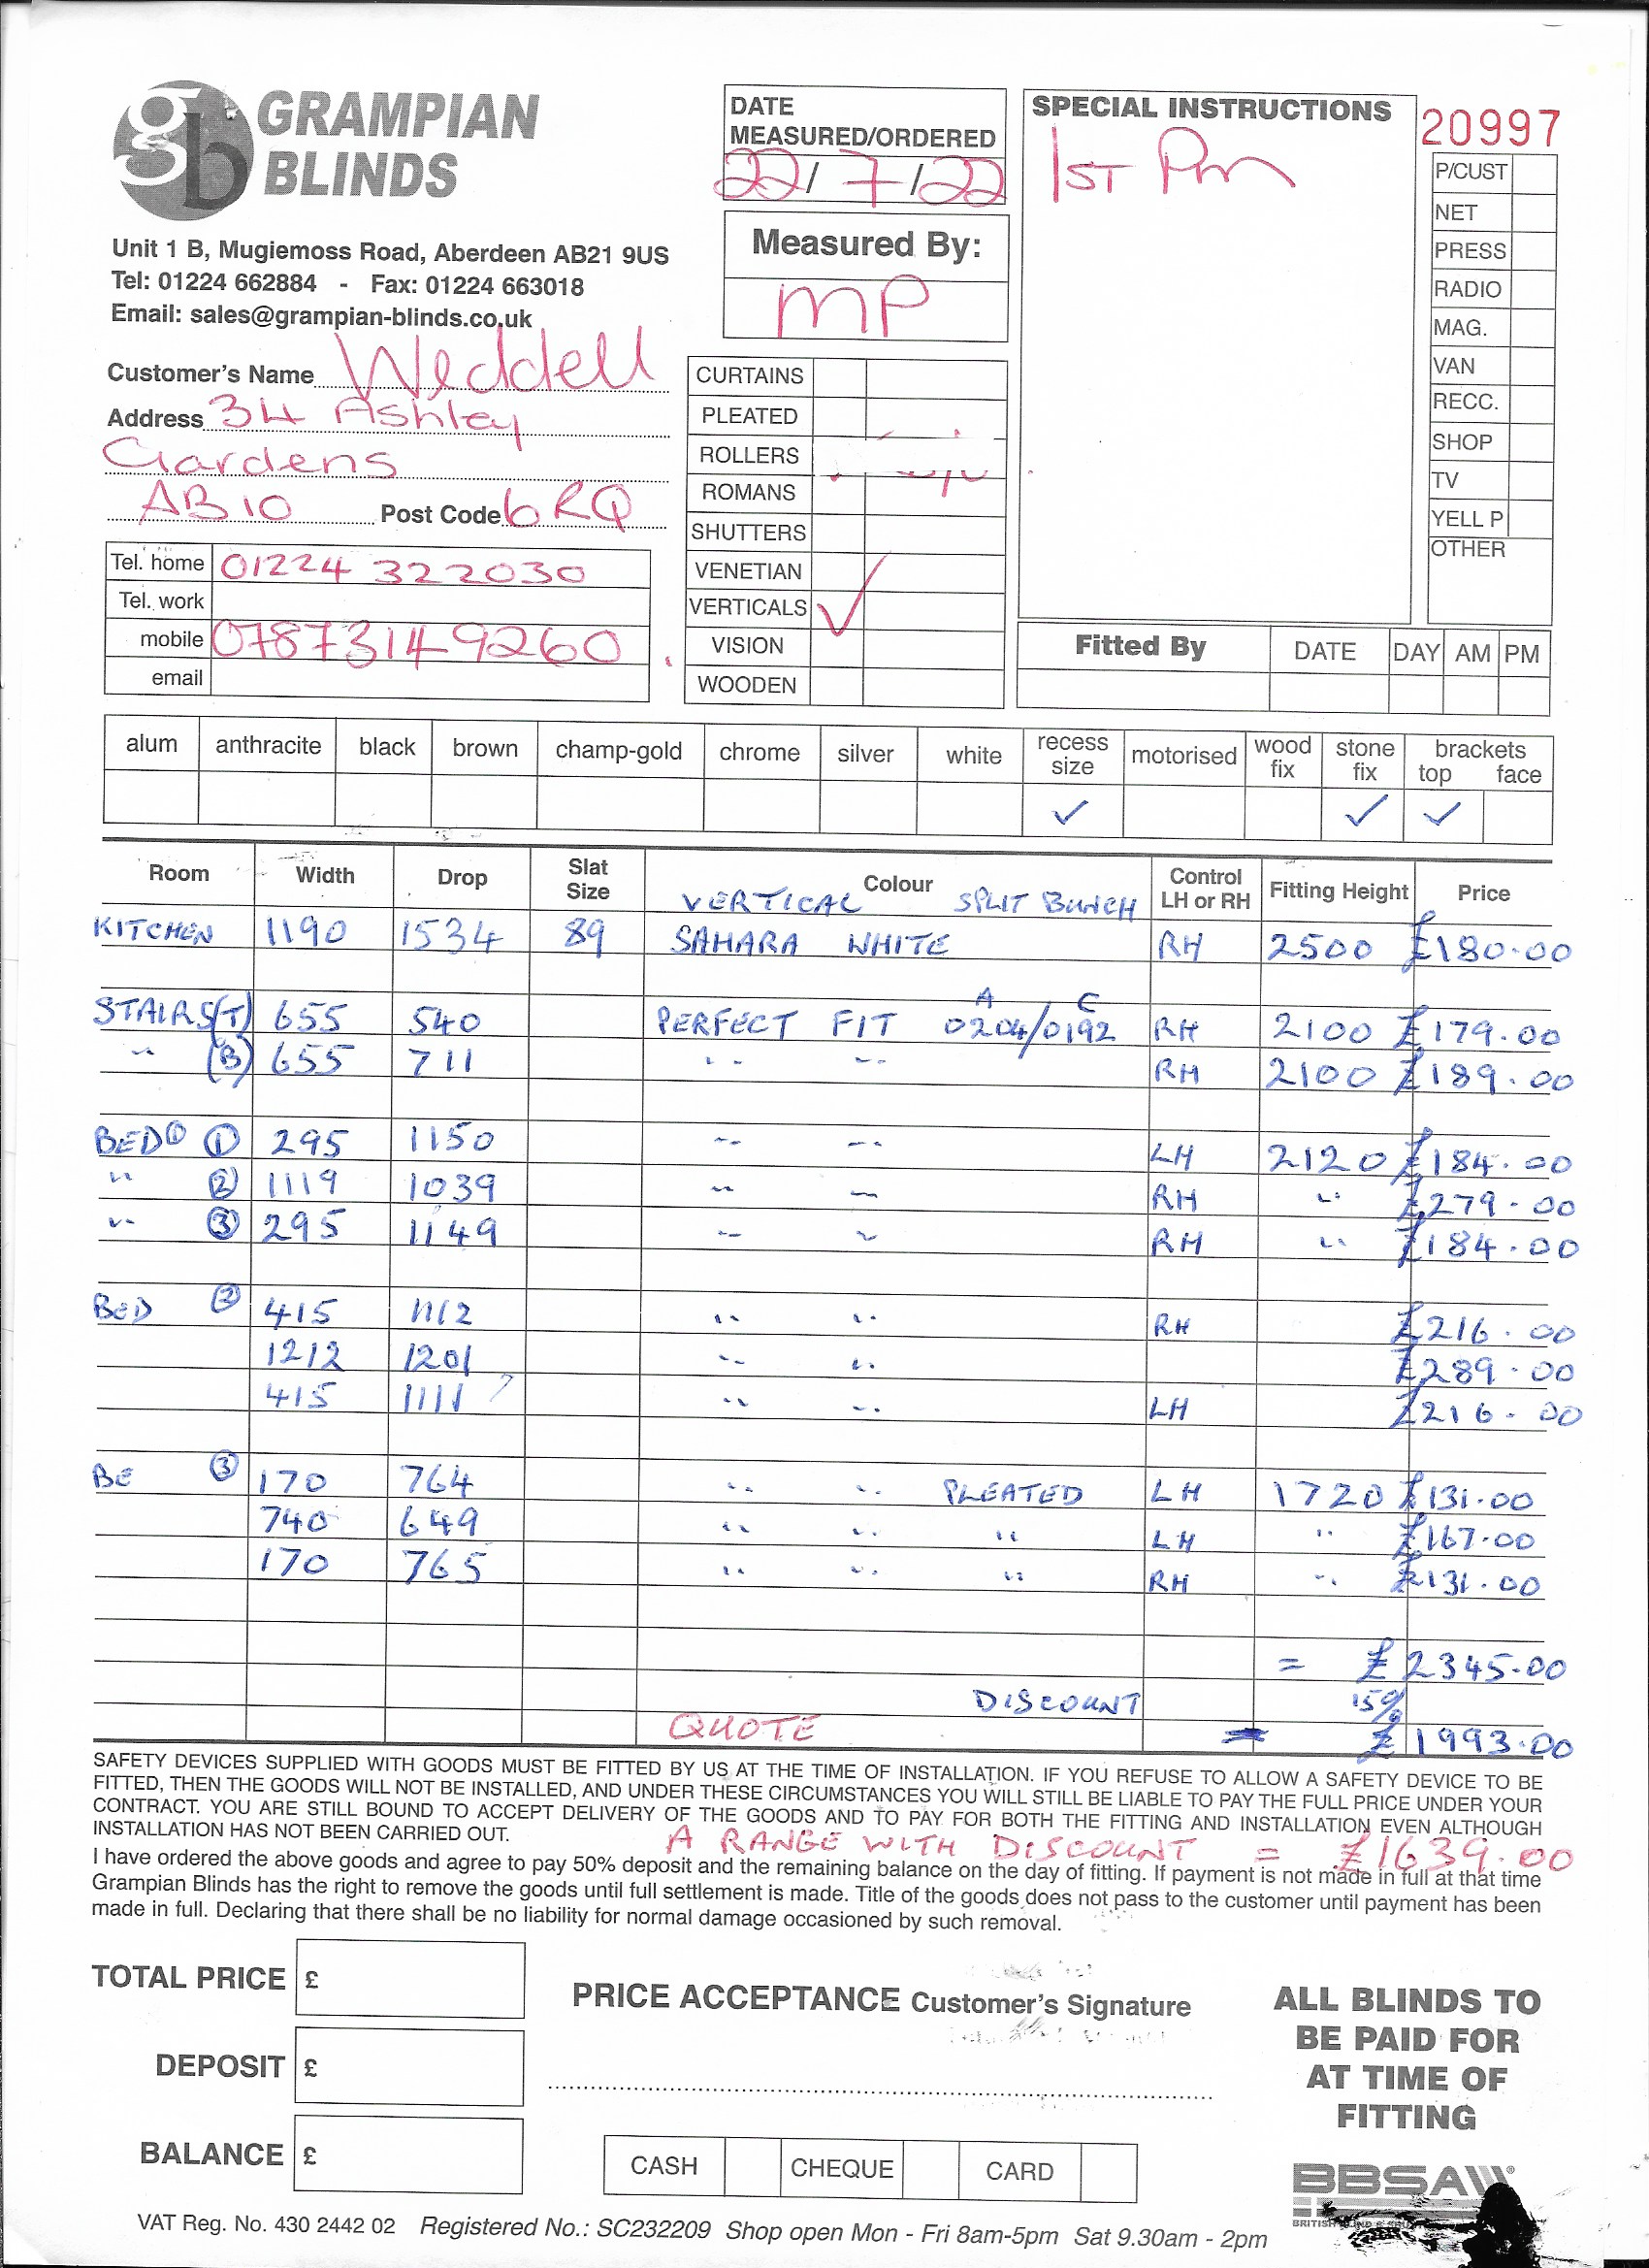 gb GRAMPIAN
BLINDS
Unit 1 B, Mugiemoss Road, Aberdeen AB21 9US
Tel: 01224 662884 - Fax: 01224 663018
Email: sales@grampian-blinds.co.uk
Customer's Name Weddell
Address 34 Ashley
Gardens
AB10 Post Code 6RQ
Tel. home 01224 322030
Tel. work
mobile 07873149260
email
DATE
MEASURED/ORDERED
22/7/22
Measured By:
MP
CURTAINS
PLEATED
ROLLERS
ROMANS
SHUTTERS
VENETIAN
VERTICALS ✓
VISION
WOODEN
SPECIAL INSTRUCTIONS
1ST Pm
20997
P/CUST
NET
PRESS
RADIO
MAG.
VAN
RECC.
SHOP
TV
YELL P
OTHER
Fitted By DATE DAY AM PM
alum anthracite black brown champ-gold chrome silver white recess size motorised wood fix stone fix brackets top face
✓ ✓ ✓
Room Width Drop Slat Size Colour Control LH or RH Fitting Height Price
VERTICAL SPLIT BUNCH
KITCHEN 1190 1534 89 SAHARA WHITE RH 2500 £180.00
A C
STAIRS(T) 655 540 PERFECT FIT 0204/0192 RH 2100 £179.00
" (B) 655 711 " " RH 2100 £189.00
BED① ① 295 1150 " " LH 2120 £184.00
" ② 1119 1039 " " RH " £279.00
" ③ 295 1149 " " RH " £184.00
BED ② 415 1112 " " RH £216.00
1212 1201 " " £289.00
415 1111 " " LH £216.00
BE ③ 170 764 " " PLEATED LH 1720 £131.00
740 649 " " " LH " £167.00
170 765 " " " RH " £131.00
= £2345.00
DISCOUNT 15%
QUOTE = £1993.00
SAFETY DEVICES SUPPLIED WITH GOODS MUST BE FITTED BY US AT THE TIME OF INSTALLATION. IF YOU REFUSE TO ALLOW A SAFETY DEVICE TO BE
FITTED, THEN THE GOODS WILL NOT BE INSTALLED, AND UNDER THESE CIRCUMSTANCES YOU WILL STILL BE LIABLE TO PAY THE FULL PRICE UNDER YOUR
CONTRACT. YOU ARE STILL BOUND TO ACCEPT DELIVERY OF THE GOODS AND TO PAY FOR BOTH THE FITTING AND INSTALLATION EVEN ALTHOUGH
INSTALLATION HAS NOT BEEN CARRIED OUT.
A RANGE WITH DISCOUNT = £1639.00
I have ordered the above goods and agree to pay 50% deposit and the remaining balance on the day of fitting. If payment is not made in full at that time
Grampian Blinds has the right to remove the goods until full settlement is made. Title of the goods does not pass to the customer until payment has been
made in full. Declaring that there shall be no liability for normal damage occasioned by such removal.
TOTAL PRICE £
DEPOSIT £
BALANCE £
PRICE ACCEPTANCE Customer's Signature
CASH CHEQUE CARD
ALL BLINDS TO
BE PAID FOR
AT TIME OF
FITTING
BBSA
VAT Reg. No. 430 2442 02 Registered No.: SC232209 Shop open Mon - Fri 8am-5pm Sat 9.30am - 2pm